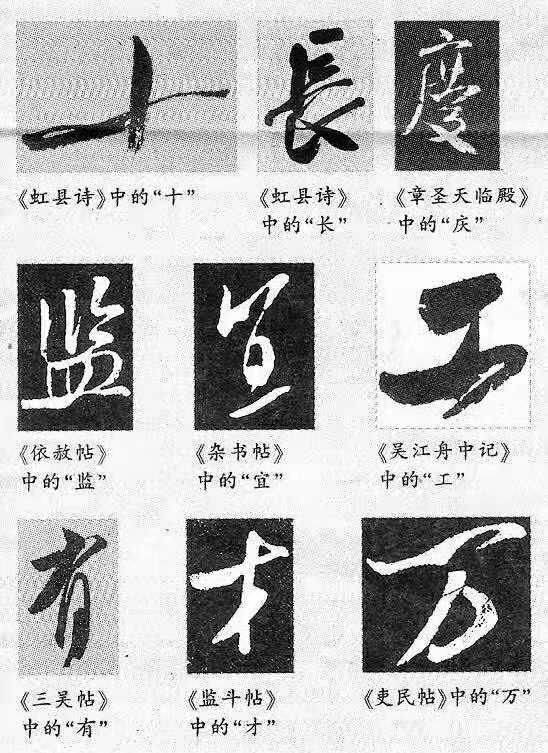 十 長 慶
《虹县诗》中的“十”
《虹县诗》
中的“长”
《章圣天临殿》
中的“庆”
监 宜 工
《依赦帖》
中的“监”
《杂书帖》
中的“宜”
《吴江舟中记》
中的“工”
有 才 万
《三吴帖》
中的“有”
《监斗帖》
中的“才”
《吏民帖》中的“万”